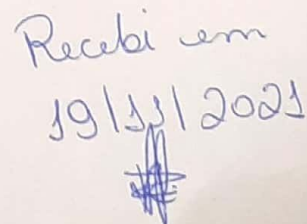 Recebi em
19/11/2021